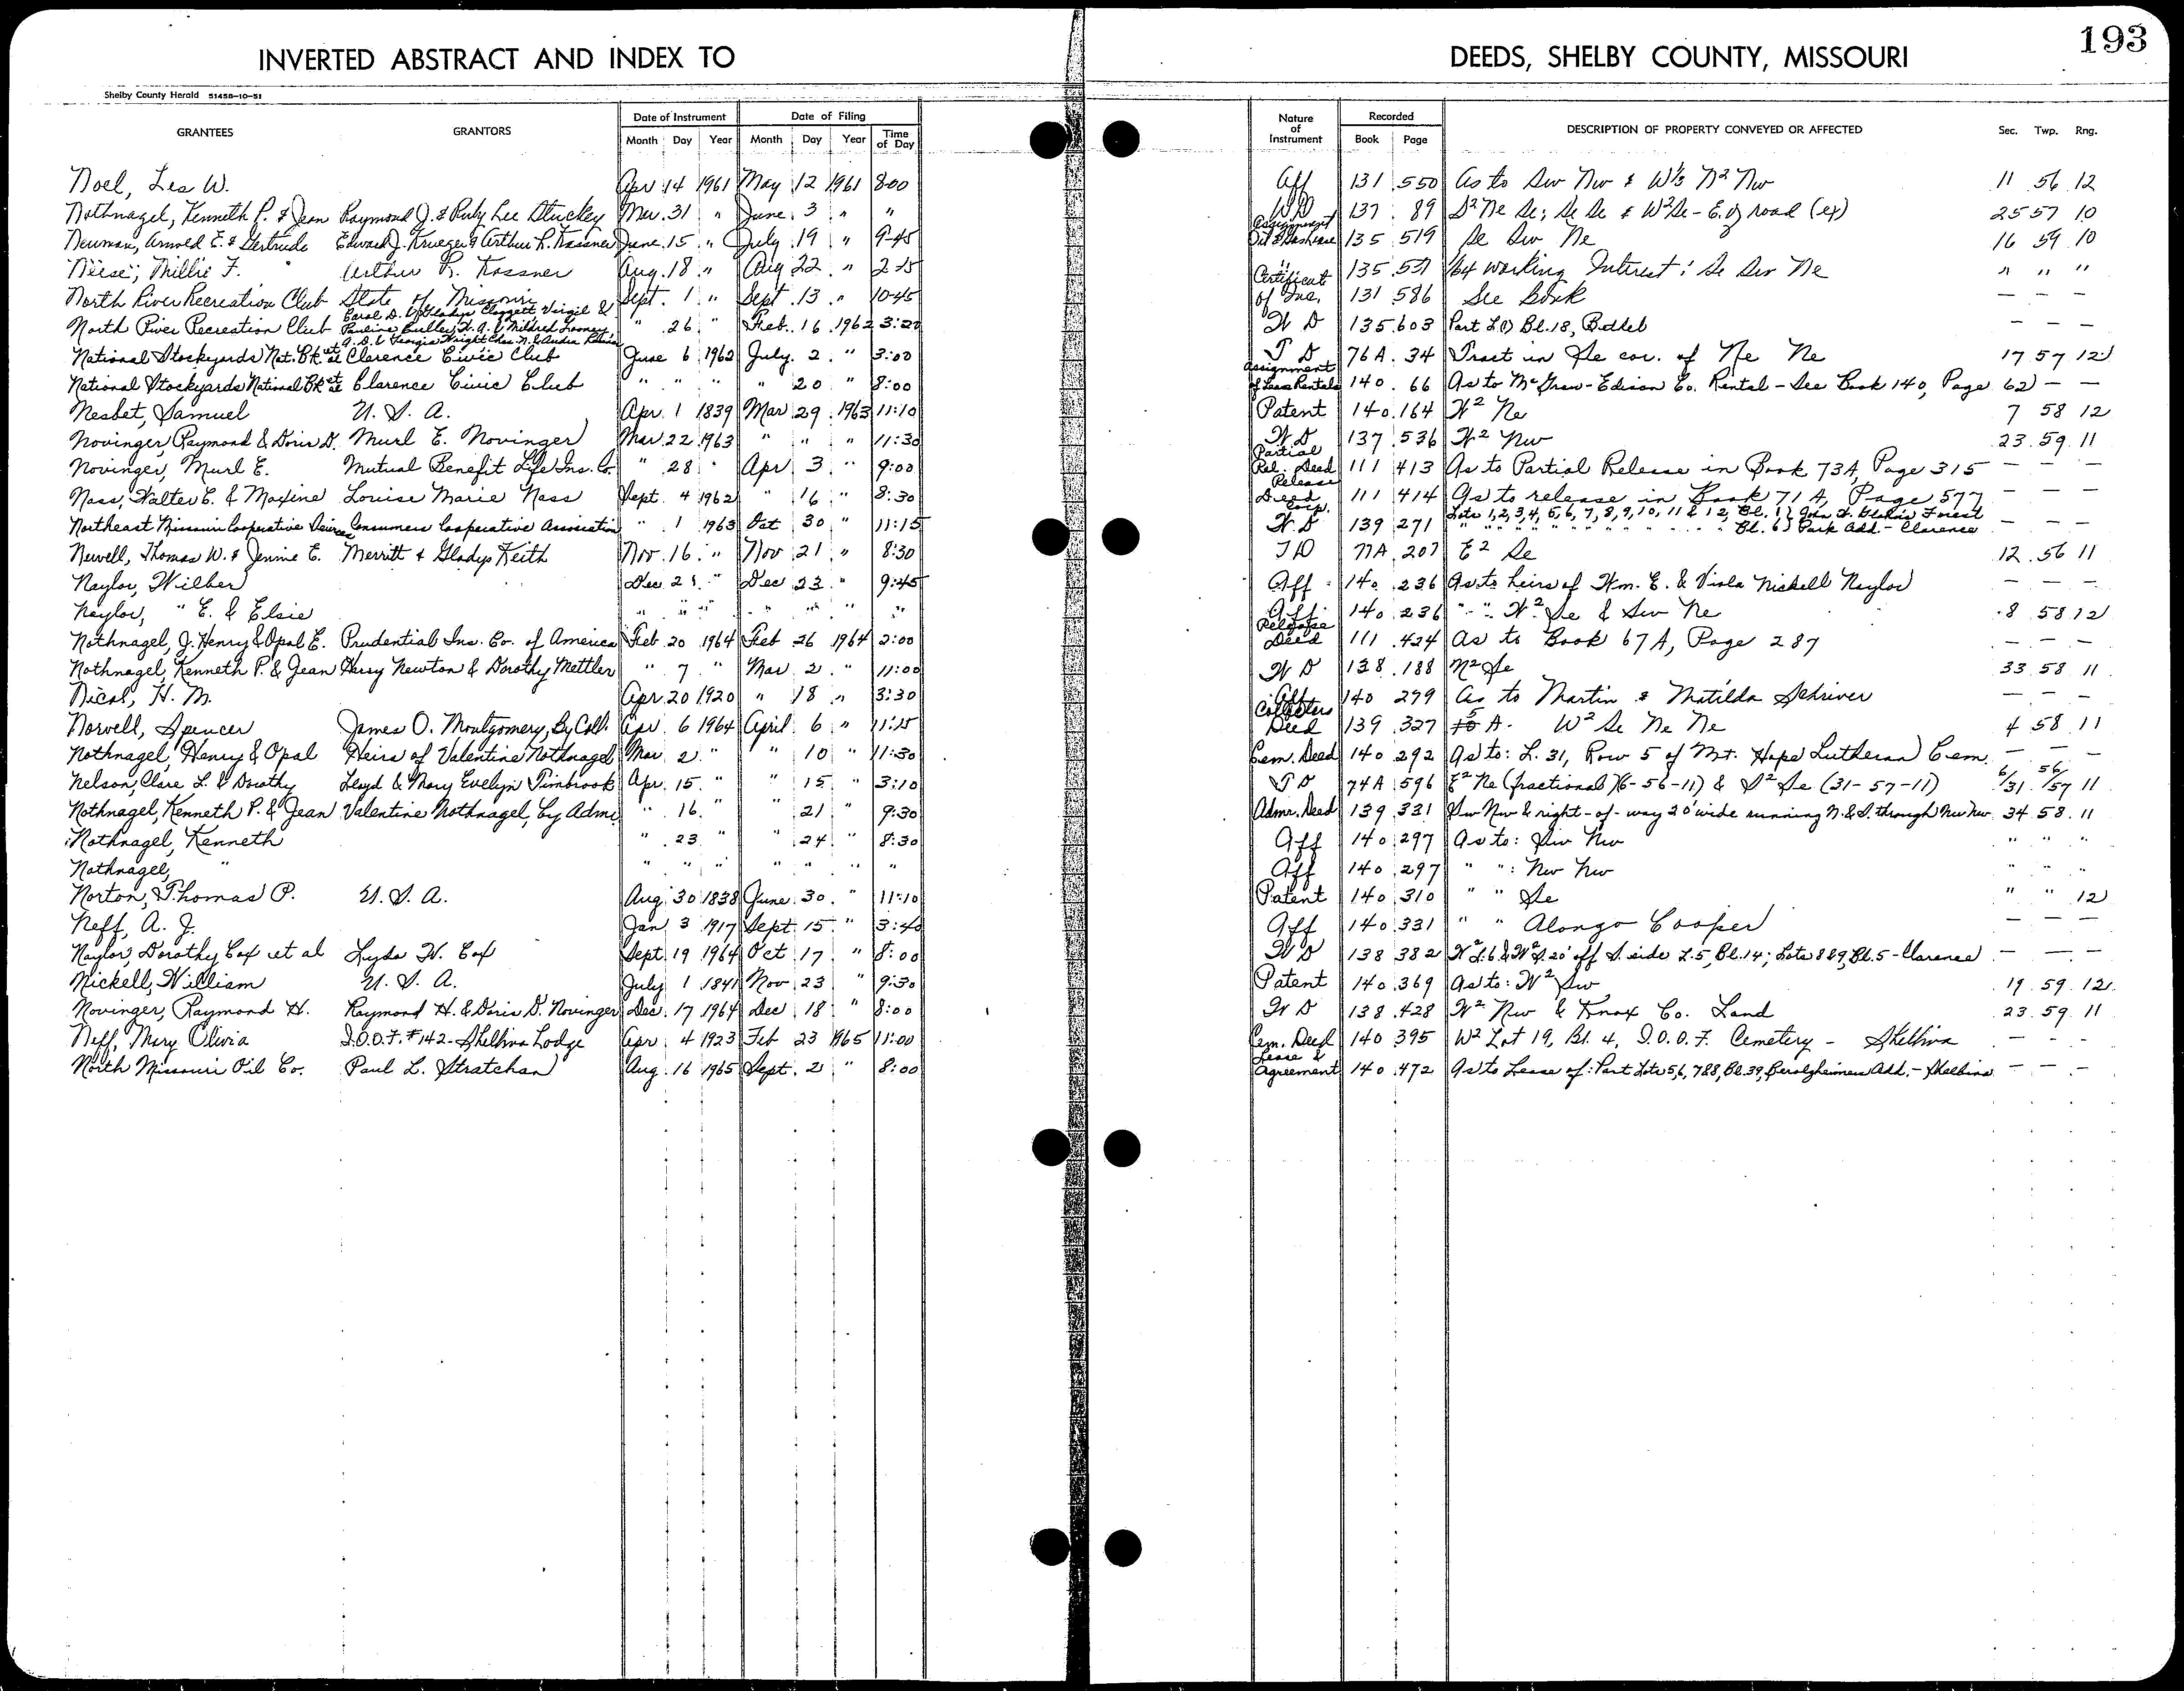 193
INVERTED ABSTRACT AND INDEX TO DEEDS, SHELBY COUNTY, MISSOURI
Shelby County Herald 51458-10-51
GRANTEES GRANTORS Date of Instrument Date of Filing Nature of Instrument Recorded DESCRIPTION OF PROPERTY CONVEYED OR AFFECTED Sec. Twp. Rng.
Month Day Year Month Day Year Time of Day Book Page
Noel, Les W. Apr 14 1961 May 12 1961 8:00 Aff 131 550 As to Sw Nw & W⅓ N2 Nw 11 56 12
Nothnagel, Kenneth P. & Jean Raymond J. & Ruby Lee Stuckey Mar. 31 " June 3 " " WD 137 89 S2 Ne Se; Se Se & W2 Se - E. of road (ex) 25 57 10
Neuman, Arnold E. & Gertrude Edward J. Krueger & Arthur R. Kassner June 15 " July 19 " 9-45 Assignment Oil & Gas Lease 135 519 Se Sw Ne 16 59 10
Niese, Millie F. Arthur R. Kassner Aug. 18 " Aug 22 " 2 15 " 135 531 1/64 working Interest: Se Sw Ne " " "
North River Recreation Club State of Missouri Sept. 1 " Sept. 13 " 10-45 Certificate of Inc. 131 586 See Book — — —
North River Recreation Club Carol D. & Gladys Claggett Virgil & Pauline Buller, H. A. & Mildred Looney, A. D. & Georgia Wright " 26 " Feb. 16 1962 3:20 W D 135 603 Part L(1) Bl. 18, Bethel — — —
National Stockyards Nat. Bk et al Clarence Civic Club June 6 1962 July 2 " 3:00 T D 76A 34 Tract in Se cor. of Ne Ne 17 57 12
National Stockyards National Bk et al Clarence Civic Club " " " " 20 " 8:00 Assignment of Lease Rentals 140 66 As to McGraw-Edison Co. Rental - See Book 140, Page 62 — —
Nesbet, Samuel U. S. A. Apr. 1 1839 Mar 29 1963 11:10 Patent 140 164 W2 Ne 7 58 12
Novinger, Raymond & Doris D. Murl E. Novinger Mar. 22 1963 " " " 11:30 W D 137 536 W2 Nw 23 59 11
Novinger, Murl E. Mutual Benefit Life Ins. Co. " 28 " Apr 3 " 9:00 Partial Rel. Deed 111 413 As to Partial Release in Book 73A, Page 315 — — —
Nass, Walter E. & Maxine Louise Marie Nass Sept. 4 1962 " 16 " 8:30 Release Deed 111 414 As to release in Book 71 A, Page 577 — — —
Northeast Missouri Cooperative Consumers Cooperative Association " 1 1963 Oct 30 " 11:15 Corp. W D 139 271 Lots 1, 2, 3, 4, 5, 6, 7, 8, 9, 10, 11 & 12, Bl. 1) Forest
" " " " " " " " " Bl. 6) Park Add. - Clarence — — —
Newell, Thomas W. & Jennie E. Merritt & Gladys Keith Nov. 16 " Nov 21 " 8:30 T D 77A 207 E2 Se 12 56 11
Naylor, Wilber Dec 21 " Dec 23 " 9:45 Aff 140 236 As to heirs of Wm. E. & Viola Nickell Naylor — — —
Naylor, " E. & Elsie " " " " " " " Aff 140 236 " " W2 Se & Sw Ne 8 58 12
Nothnagel, J. Henry & Opal E. Prudential Ins. Co. of America Feb 20 1964 Feb 26 1964 2:00 Release Deed 111 424 As to Book 67A, Page 287 — — —
Nothnagel, Kenneth P. & Jean Harry Newton & Dorothy Mettler " 7 " Mar 2 " 11:00 W D 138 188 N2 Se 33 58 11
Nicol, H. M. Apr 20 1920 " 18 " 3:30 Aff 140 279 As to Martin & Matilda Schriver — — —
Norvell, Spencer James O. Montgomery, By Coll. Apr 6 1964 April 6 " 11:15 Collectors Deed 139 327 5 A. W2 Se Ne Ne 4 58 11
Nothnagel, Henry & Opal Heirs of Valentine Nothnagel Mar. 2 " " 10 " 11:30 Cem. Deed 140 292 As to: L. 31, Row 5 of Mt. Hope Lutheran Cem. — — —
Nelson, Clare L. & Dorothy Lloyd & Mary Evelyn Timbrook Apr. 15 " " 15 " 3:10 T D 74A 596 E2 Ne (fractional)(6-56-11) & S2 Se (31-57-11) 6/31 56/57 11
Nothnagel, Kenneth P. & Jean Valentine Nothnagel, by Admr. " 16 " " 21 " 9:30 Admr. Deed 139 331 Sw Nw & right-of-way 20' wide running N. & S. through Nw Nw 34 58 11
Nothnagel, Kenneth " 23 " " 24 " 8:30 Aff 140 297 As to: Sw Nw " " "
Nothnagel, " " " " " " " " Aff 140 297 " ": Nw Nw " " "
Norton, Thomas P. U. S. A. Aug. 30 1838 June 30 " 11:10 Patent 140 310 " " Se " " 12
Neff, A. J. Jan 3 1917 Sept. 15 " 3:40 Aff 140 331 " " Alonzo Cooper — — —
Naylor, Dorothy Cox et al Lyda W. Cox Sept. 19 1964 Oct 17 " 8:00 W D 138 382 W2 L. 6 & W2 of 20' off S. side L. 5, Bl. 14; Lots 8 & 9, Bl. 5 - Clarence — — —
Nickell, William U. S. A. July 1 1841 Nov 23 " 9:30 Patent 140 369 As to: W2 Sw 19 59 12
Novinger, Raymond H. Raymond H. & Doris D. Novinger Dec. 17 1964 Dec 18 " 8:00 W D 138 428 W2 Nw & Knox Co. Land 23 59 11
Neff, Mary Olivia I.O.O.F. #142 - Shelbina Lodge Apr 4 1923 Feb 23 1965 11:00 Cem. Deed 140 395 W2 Lot 19, Bl. 4, I.O.O.F. Cemetery - Shelbina — — —
North Missouri Oil Co. Paul L. Stratchan Aug. 16 1965 Sept. 2 " 8:00 Lease & Agreement 140 472 As to Lease of: Part Lots 5, 6, 7 & 8, Bl. 39, Berolzheimers Add. - Shelbina — — —